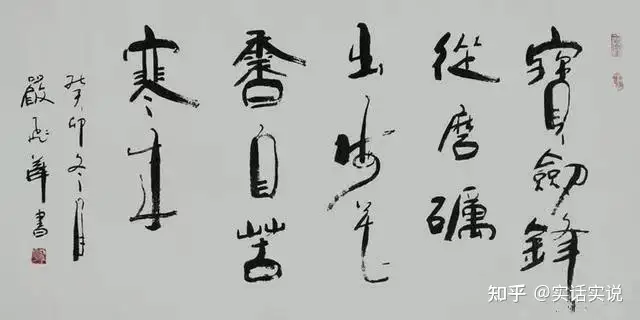 寶劍鋒
從磨礪
出梅花
香自苦
寒來
癸卯冬月
嚴飛華書
知乎 @实话实说